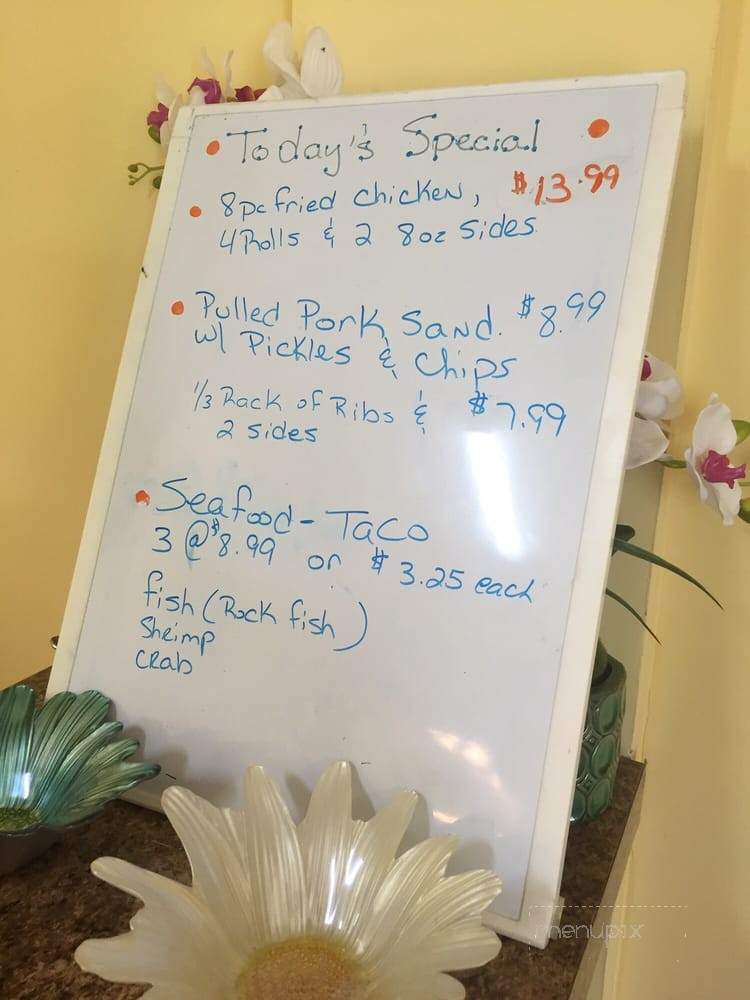 Today's Special
8pc fried chicken, $13.99
4 Rolls & 2 8oz sides
Pulled Pork Sand. $8.99
w/ Pickles & Chips
1/3 Rack of Ribs & $7.99
2 sides
Seafood - Taco
3 @ $8.99 or $3.25 each
fish (Rock fish)
Shrimp
Crab
menupix